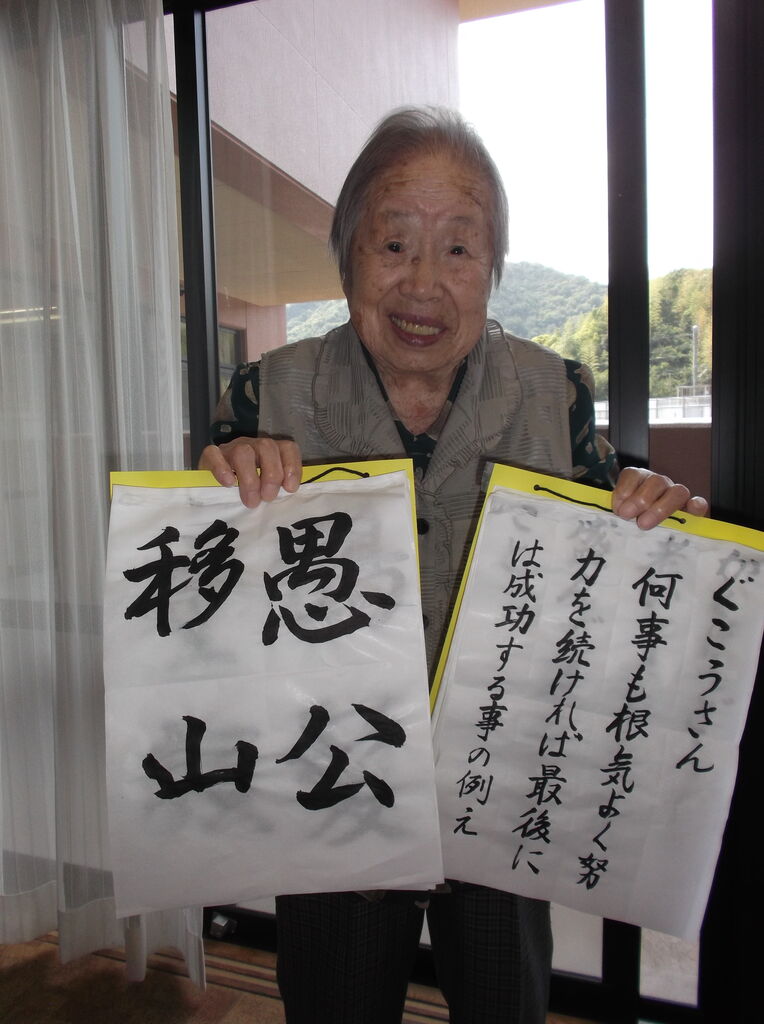 愚公
移山
ぐこうさん
何事も根気よく努
力を続ければ最後に
は成功する事の例え